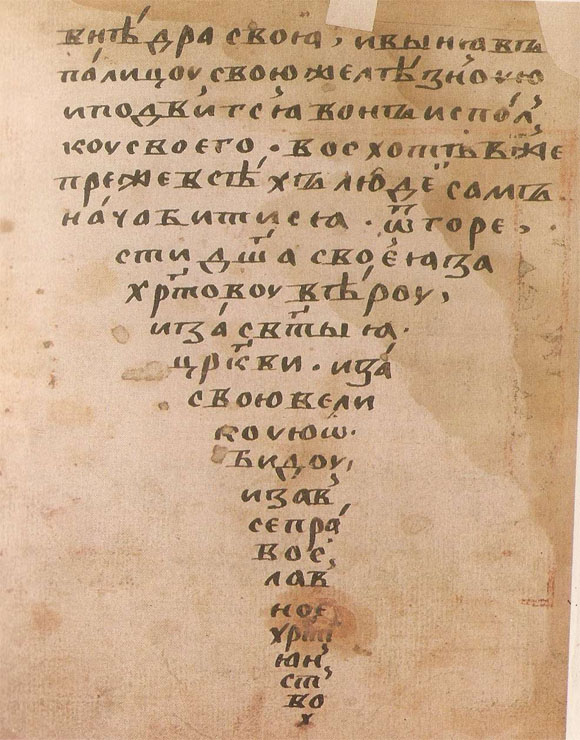 внѣ́дра своꙗ̀, ивыноꙗвъ
па́лицоу свою желѣ́зноую
иподви́гсꙗ воньиспо́л
коусвоего̀. восхотѣ́вже
прежевсѣ́хълюдеи̏самъ
на́чабитисꙗ. ѿгоре,
стидш҃а своеꙗ̀за
хр҇товоу вѣ́роу,
иза́свт҃ыꙗ.
цр҃кви. иза́
своювели
коуюѡ҆
биду,
изав
сепра́
вос
лав
ное
хр҇ти
ꙗн
ст
во
х